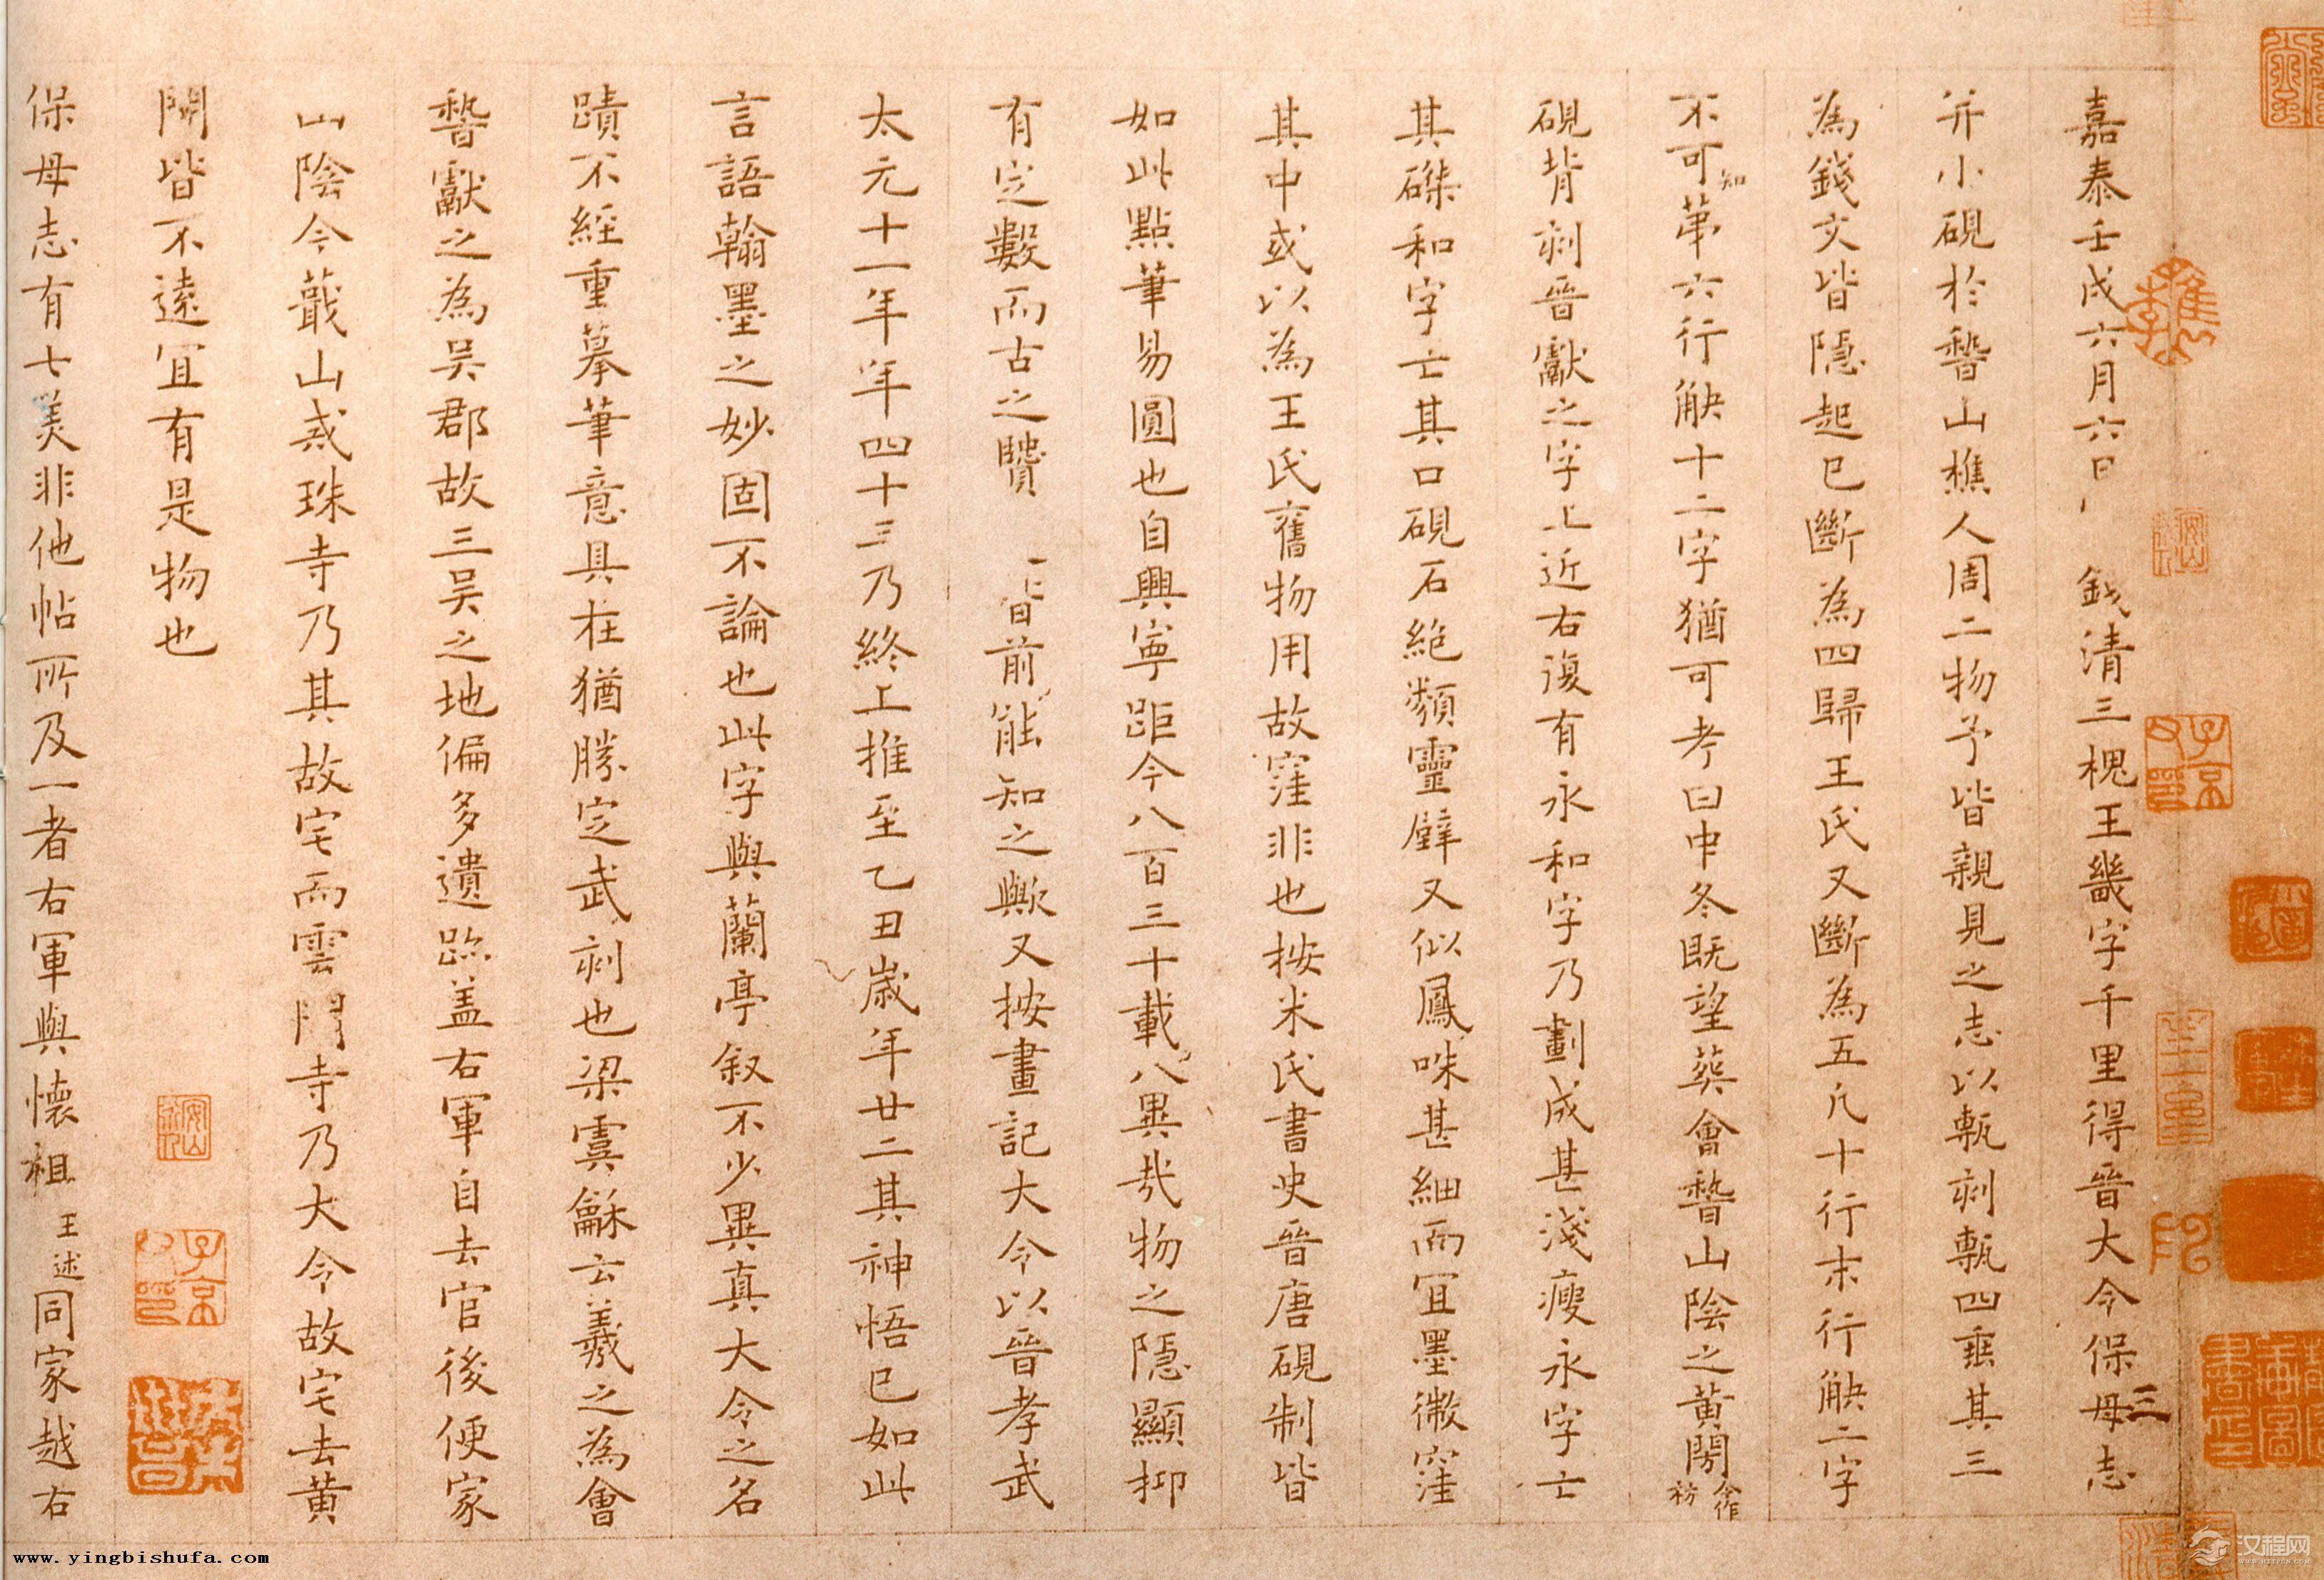 嘉泰壬戌六月六日錢清三槐王畿字千里得晉大令保母志
三
并小硯於嵇山樵人周二物予皆親見之志以甎刻甎四垂其三
為錢文皆隱起已斷為四歸王氏又斷為五凡十行末行缺二字
不可知第六行缺十二字猶可考曰中冬既望葬會嵇山陰之黃閍
今作祊
硯背刻晉獻之字上近右復有永和字乃劃成甚淺瘦永字亡
其磔和字亡其口硯石絕類靈璧又似鳳咮甚細而宜墨微窪
其中或以為王氏舊物用故窪非也按米氏書史晉唐硯制皆
如此點筆易圓也自興寧距今八百三十載八異哉物之隱顯抑
有定數而古之賢皆前能知之歟又按畫記大令以晉孝武
太元十一年年四十三乃終上推至乙丑歲年廿二其神悟已如此
言語翰墨之妙固不論也此字與蘭亭叙不少異真大令之名
蹟不經重摹筆意具在猶勝定武刻也梁虞龢云羲之為會
嵇獻之為吳郡故三吳之地偏多遺跡蓋右軍自去官後便家
山陰今蕺山戒珠寺乃其故宅而雲門寺乃大令故宅去黃
閍皆不遠宜有是物也
保母志有七美非他帖所及一者右軍與懷祖王述同家越右
子京父印
子京父印
www.yingbishufa.com
汉程网